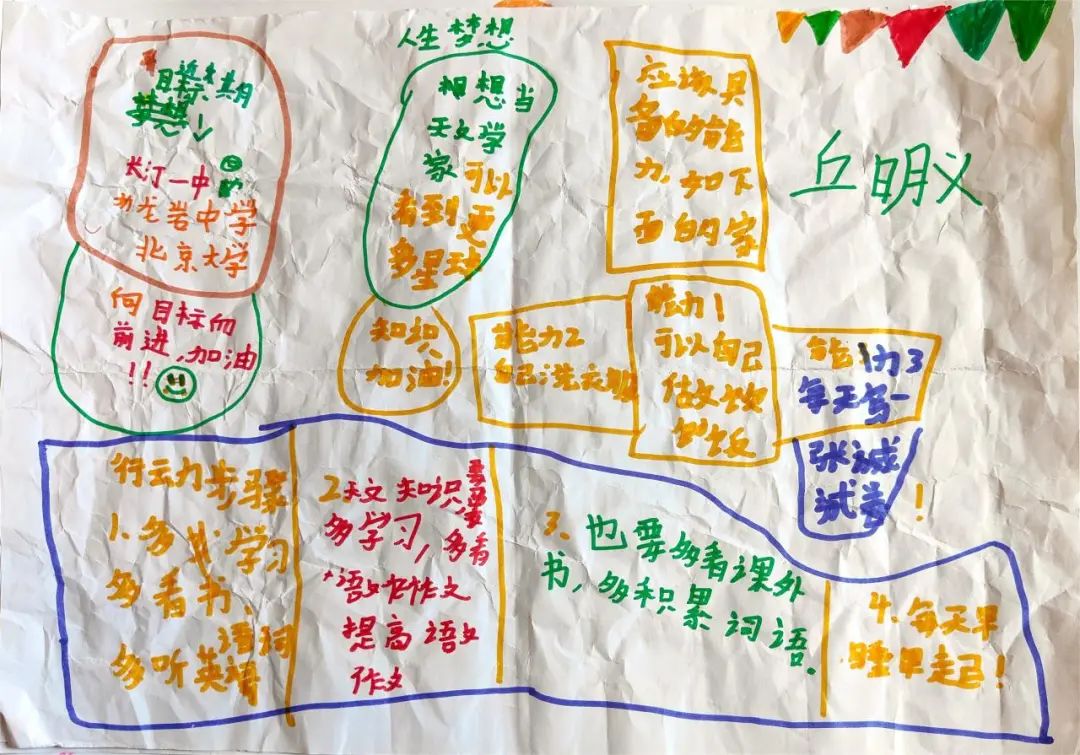 人生梦想
近期
梦想！
长汀一中
龙岩中学
北京大学
向目标而
前进，加油
!!
想当
天文学
家可以
看到更
多星球
知识、
加油！
应该具
备的能
力。如下
面的家
丘明义
能力2
自己洗衣服
能力1
可以自己
做饭
能力3
每天写一
张
试卷！
行动力步骤
1、多学习
多看书、
多听英语
2天文知识要
多学习，多看
语文作文
提高语文
作文
3、也要多看课外
书，多积累词语。
4、每天早
睡早起！